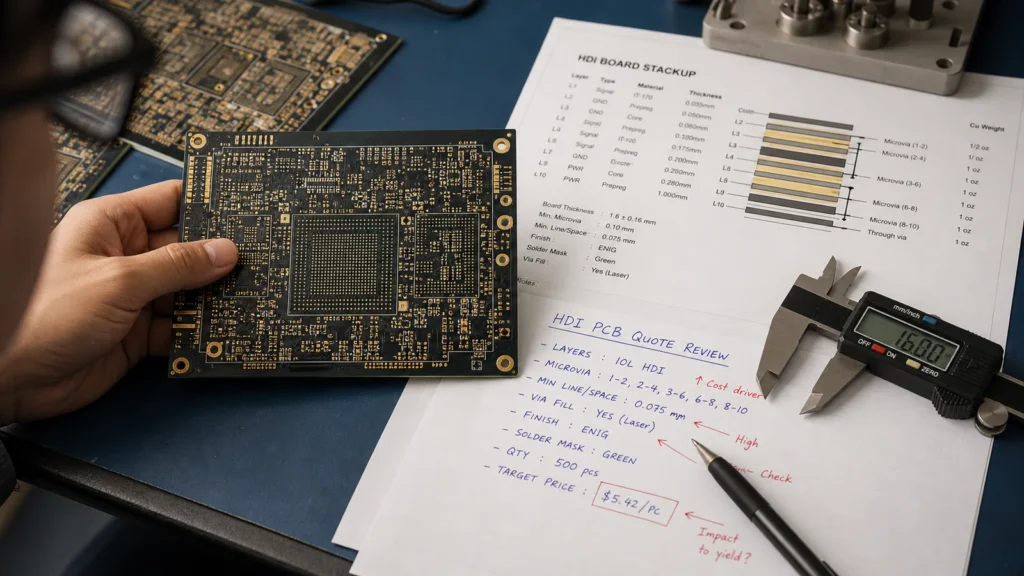 HDI BOARD STACKUP
Layer Type Material Thickness
L1 Signal 0.035mm
L2 GND Prepreg 0.050mm
L3 GND Core 0.060mm
L3 Signal Prepreg 0.100mm
L4 Signal 0.175mm
L6 Signal Prepreg 0.200mm
L7 GND 0.260mm
L8 PWR Core 0.280mm
L10 PWR Prepreg 1.000mm
Cu Weight
L2 Microvia (1-2) 1/2 oz
L3 Microvia (2-4) 1/ oz
L4 1 oz
L8 Microvia (3-6) 1 oz
L6 1 oz
L9 Microvia (6-8) 1 oz
L10 Microvia (8-10) 1 oz
Through via 1 oz
Board Thickness : 1.6 ± 0.16 mm
Min. Microvia : 0.10 mm
Min. Line/Space : 0.075 mm
Finish : ENIG
Solder Mask : Green
Via Fill : Yes (Laser)
HDI PCB QUOTE REVIEW
- LAYERS : 10L HDI
↑ Cost driver
- MICROVIA : 1-2, 2-4, 3-6, 6-8, 8-10
- MIN LINE/SPACE : 0.075 mm
← High
- VIA FILL : YES (LASER)
- FINISH : ENIG
Check
- SOLDER MASK : GREEN
- QTY : 500 pcs
- TARGET PRICE : $5.42/PC
← Impact
to yield?
mm/inch
16.00
OFF ON
ZERO